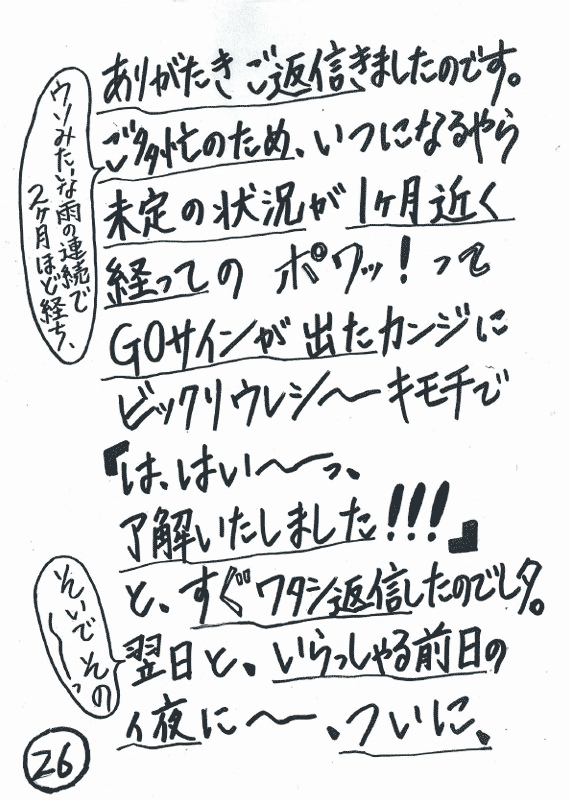 ありがたきご返信きましたのです。
ご多忙のため、いつになるやら
未定の状況が1ヶ月近く
経っての ポワッ!って
GOサインが出たカンジに
ビックリウレシ〜キモチで
『は、はい〜っ、
了解いたしました!!!』
と、すぐワタシ返信したのでした。
翌日と、いらっしゃる前日の
イ夜に〜、ついに、
ウソみたいな雨の連続で
2ヶ月ほど経ち、
そいでその
〜っ
26